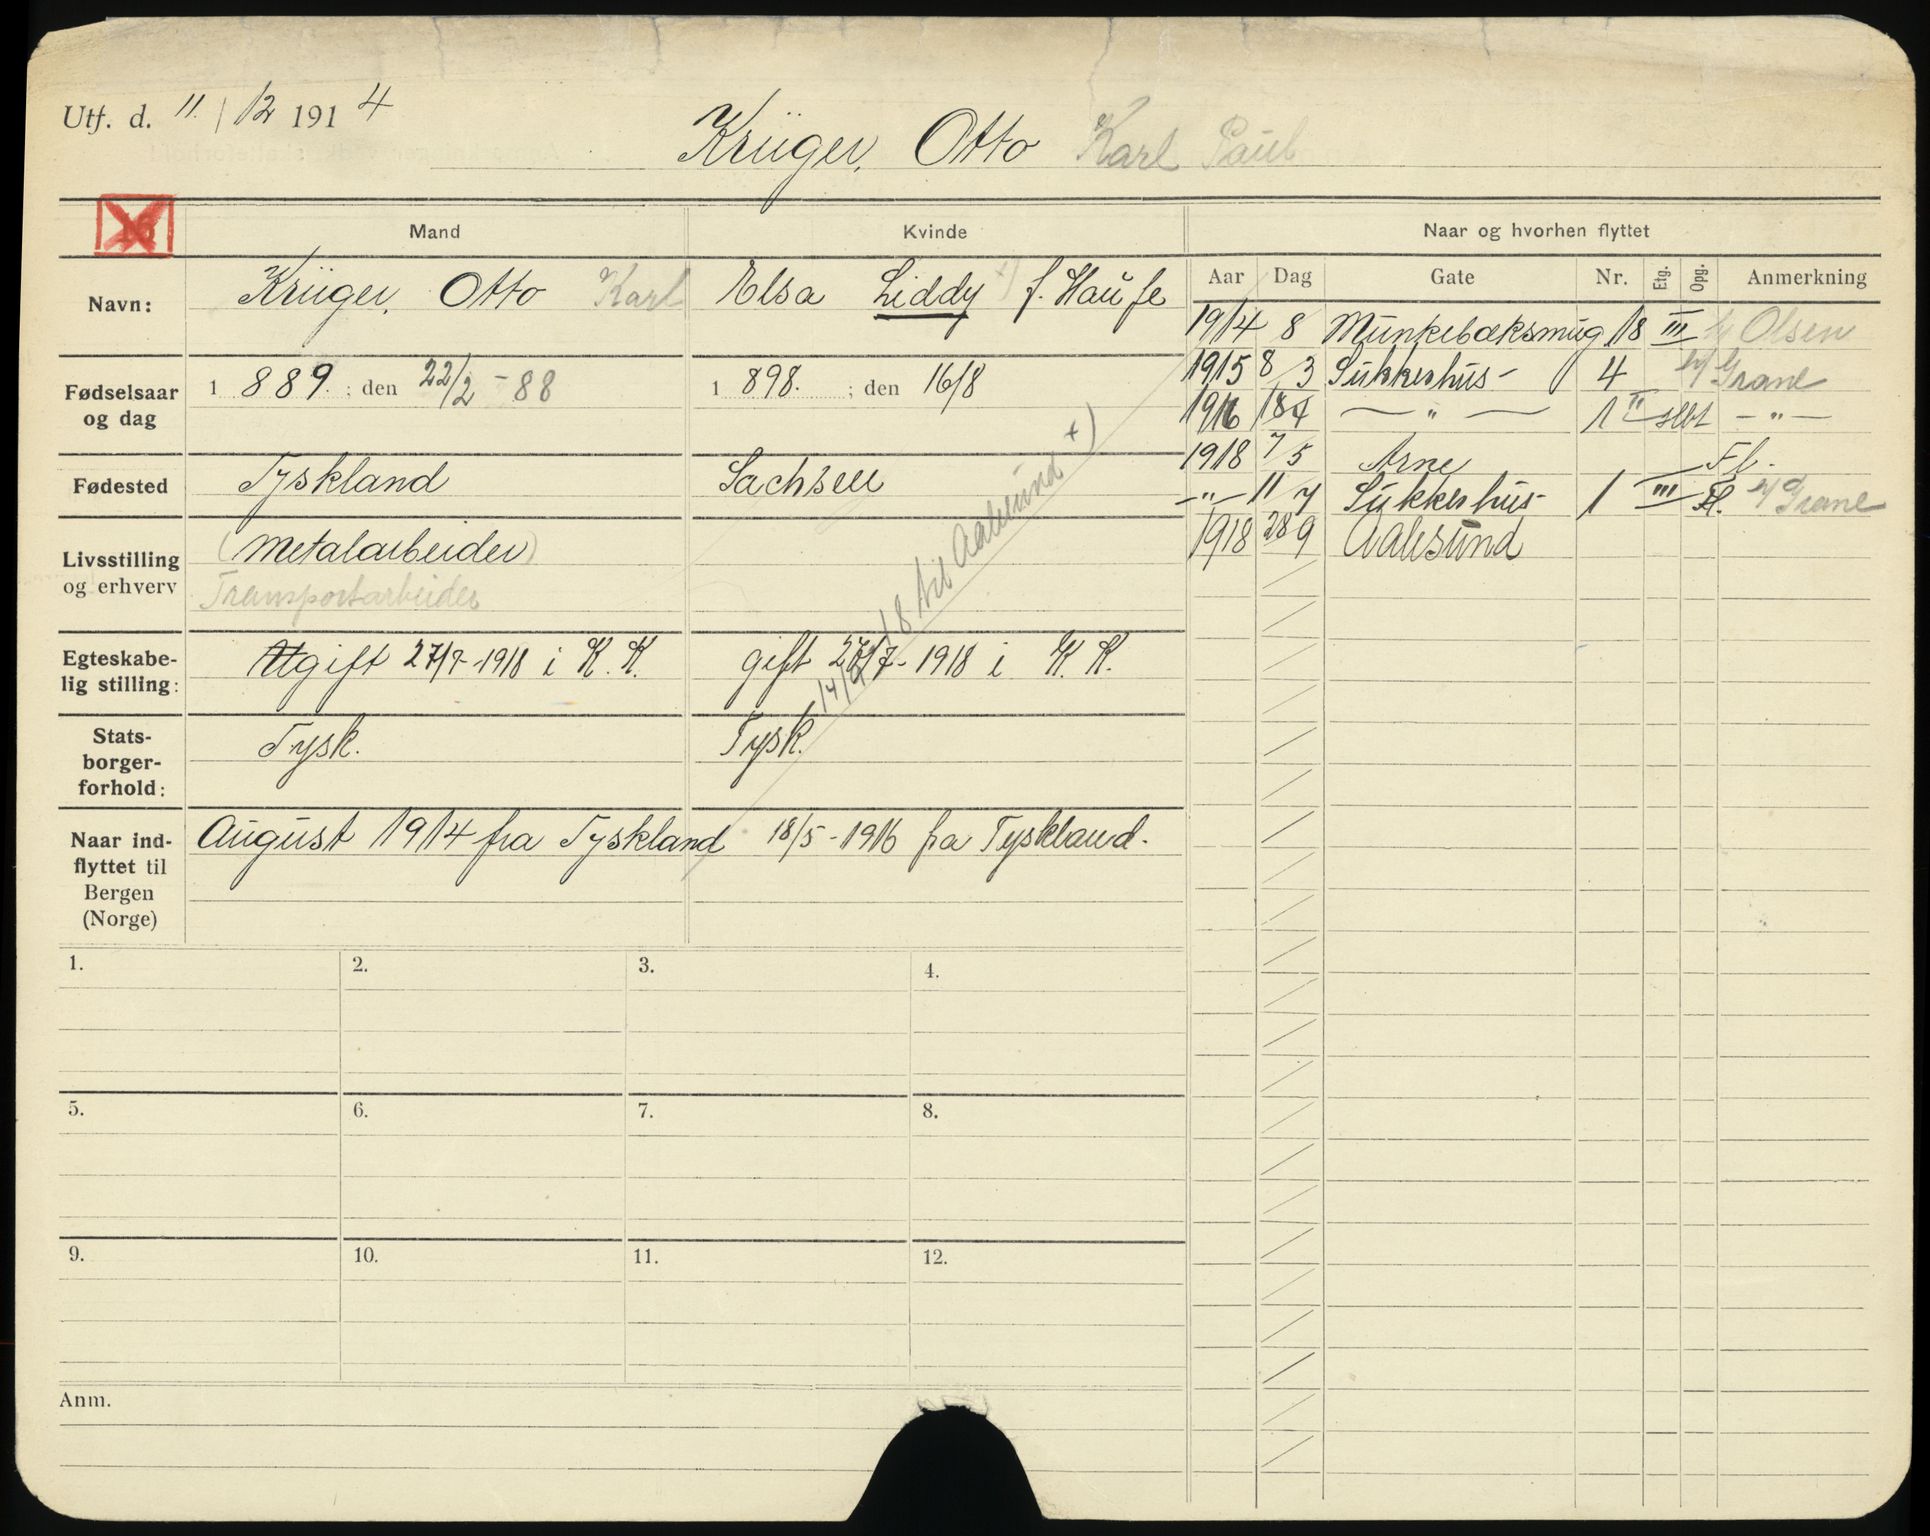 Utf. d. 11/12 1914
Krüger, Otto Karl Paul
Mand Kvinde Naar og hvorhen flyttet
Aar Dag Gate Nr. Etg. Opg. Anmerkning
Navn: Krüger, Otto Karl Elsa Liddy +) f. Haufe
Fødselsaar og dag 1889 ; den 22/2 - 88 1898. ; den 16/8
Fødested Tyskland Sachsen
Livsstilling og erhverv (Metalarbeider)
Transportarbeider
Egteskabe-
lig stilling: Ugift 27/7-1918 i K. K. gift 27/7-1918 i K. K.
Stats-
borger-
forhold: Tysk. Tysk.
Naar ind-
flyttet til
Bergen
(Norge) August 1914 fra Tyskland 18/5-1916 fra Tyskland.
18 til Aalesund +)
1914 8 Munkebæksmug 18 III Olsen
1915 8/3 Sukkerhus- 4 Grane
1916 18/4 — " — 1 II slbt - " -
1918 7/5 Arne Fl.
- " - 11/7 Sukkerhus- 1 III Fl. Grane
1918 28/9 Aalesund
1. 2. 3. 4.
5. 6. 7. 8.
9. 10. 11. 12.
Anm.